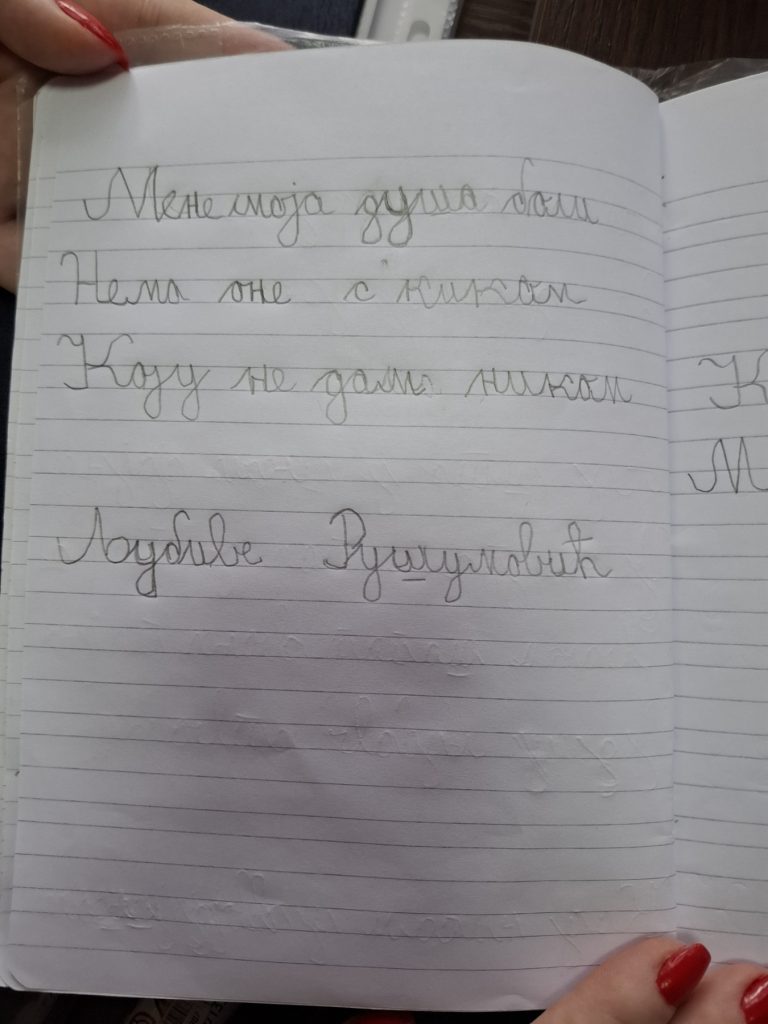 Мене моја душа боли
Нема оне с кикам
Коју не дам никам
Љубиве Ршумовић
К
М